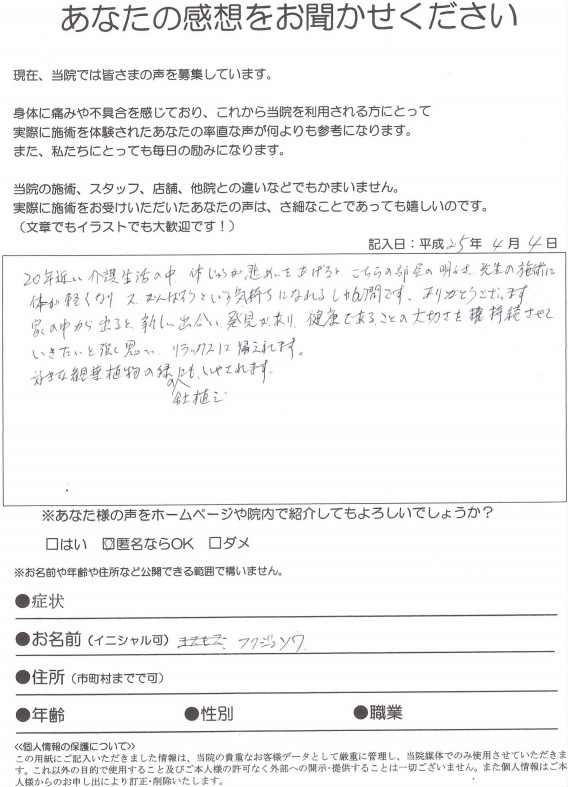 あなたの感想をお聞かせください
現在、当院では皆さまの声を募集しています。
身体に痛みや不具合を感じており、これから当院を利用される方にとって
実際に施術を体験されたあなたの率直な声が何よりも参考になります。
また、私たちにとっても毎日の励みになります。
当院の施術、スタッフ、店舗、他院との違いなどでもかまいません。
実際に施術をお受けいただいたあなたの声は、些細なことであっても嬉しいのです。
（文章でもイラストでも大歓迎です！）
記入日：平成25年 4月 4日
20年近い介護生活の中、体じゅうが悲めいをあげると、こちらの部屋の明るさ、先生の施術に
体が軽くなり 又 がんばろうという気持ちになれるしゅん間です。ありがとうございます
家の中から出ると、新しい出合い、発見があり、健康であることの大切さを持続させて
いきたいと強く思い、リラックスに帰えれます。
好きな観葉植物の緑にも、いやされます。
の人
鉢植え
※あなた様の声をホームページや院内で紹介してもよろしいでしょうか？
□はい □匿名ならOK □ダメ
※お名前や年齢や住所など公開できる範囲で構いません。
●症状
●お名前（イニシャル可） コスモス フクジュソウ
●住所（市町村までで可）
●年齢 ●性別 ●職業
≪個人情報の保護について≫
この用紙にご記入いただきました情報は、当院の貴重なお客様データとして厳重に管理し、当院媒体でのみ使用させていただきま
す。これ以外の目的で使用すること及びご本人様の許可なく外部への開示・提供することは一切ございません。また個人情報はご本
人様からのお申し出により訂正・削除いたします。